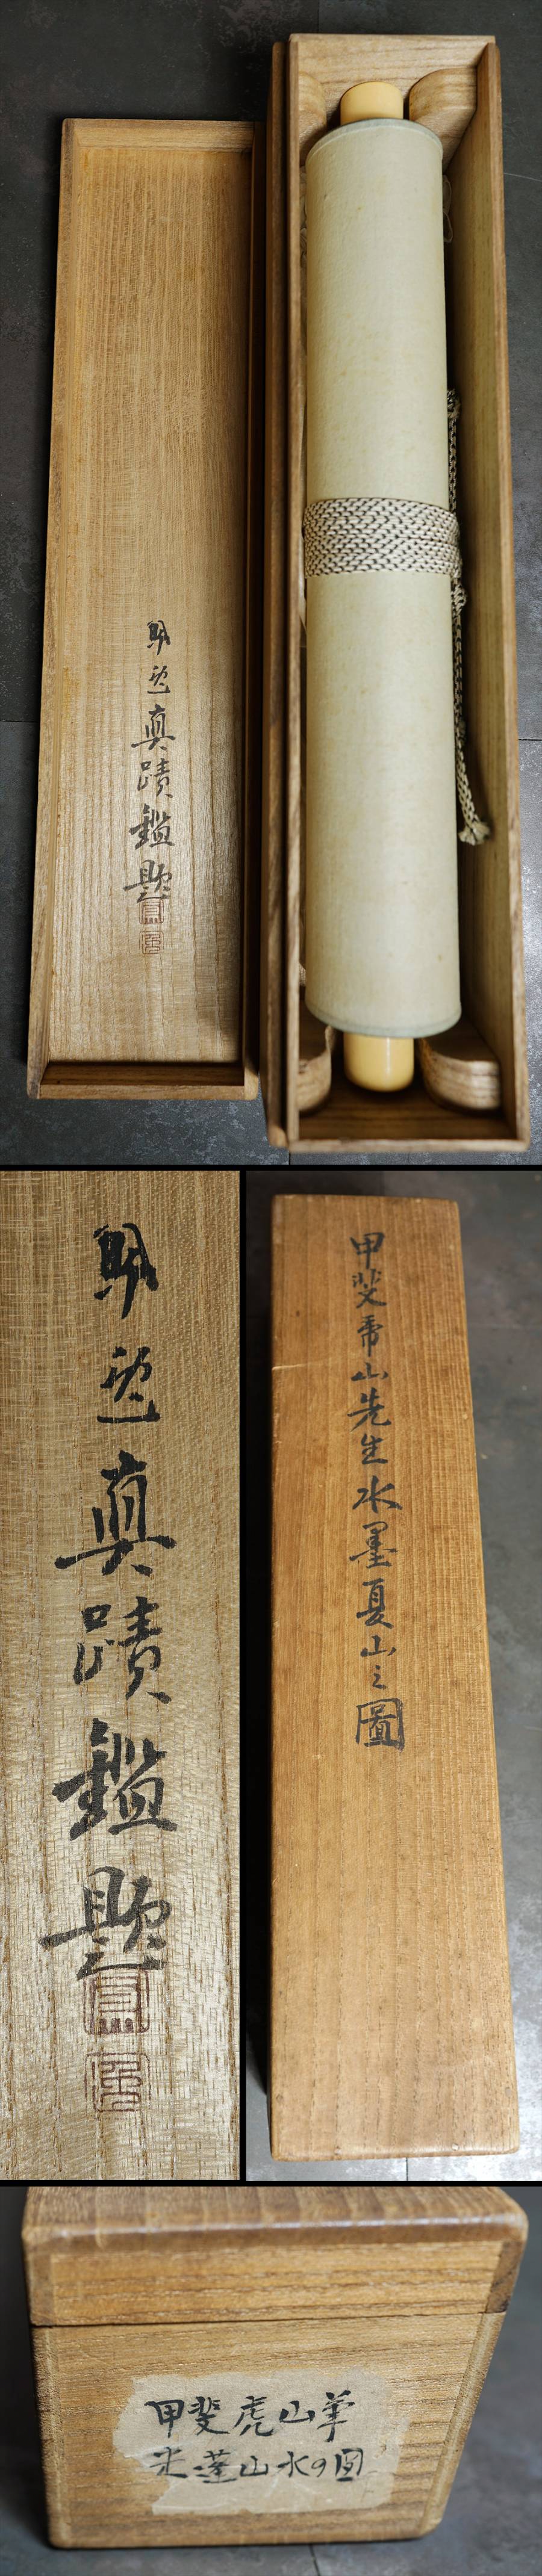 真蹟鑑題
真蹟鑑題
甲斐乕山先生水墨夏山之圖
甲斐虎山筆
米蓬山水の図